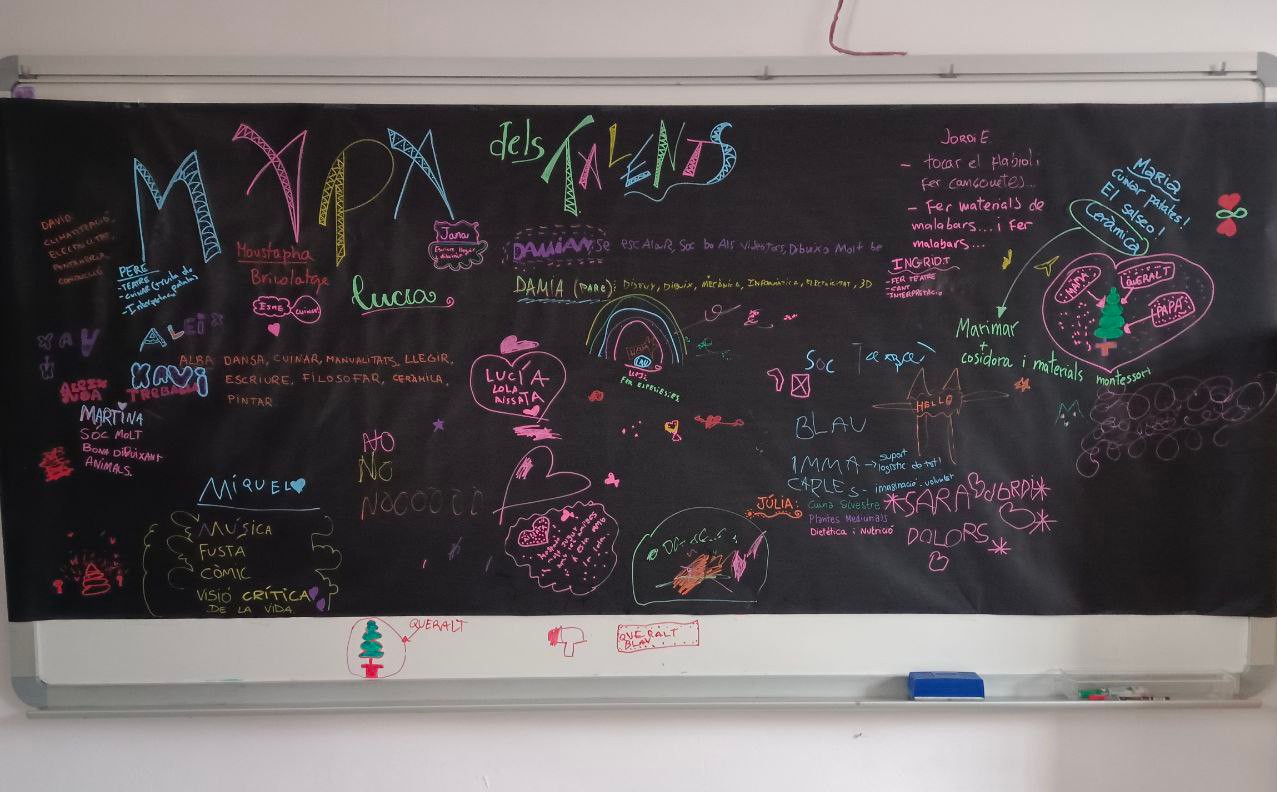 MAPA dels TALENTS
DAVID
CLIMATITZACIÓ.
ELECTRICITAT.
FONTANERIA.
CONDUCCIÓ
PERE
- TEATRE
- CUINAR (truita de patata)
- Interpretació
Moustapha
Bricolatge
ESME CUINAR
Jana
Lucía
DAMIÀN: Se escAlaR, Soc bo Als videojocs, Dibuixo Molt be
DAMIÀ (PARE): DISENY, DIBUIX, MECÀNICA, INFORMATICA, ELECTRICITAT, 3D
JORDI E.
- tocar el flabiol i
Fer cançonetes...
- Fer materials de
malabars... i Fer
malabars...
INGRID.T
- FER TEATRE
- CANT
- INTERPRETACIO
MARIA
cuinar patates!
El salseo!
Ceràmica
MAMA
QUERALT
PAPA
Marimar
+
cosidora i materials montessori
XAV
ALEIX
XAVI
TREBALL
ALBA DANSA, CUINAR, MANUALITATS, LLEGIR,
ESCRIURE, FILOSOFAR, CERÀMICA,
PINTAR
MARTINA
SÓC MOLT
BONA DIBUIXANT
ANIMALS.
LUCÍA
LOLA
AISSATA
FER ESPECIES:ES
SOC
HELLO
BLAU
NO
NO
NOOOOII
IMMA → suport
logístic de tot!
CARLES - imaginació i voluntat
JÚLIA: Cuina Silvestre
Plantes Medicinals
Dietètica i Nutrició
SARA
JORDI
DOLORS
MIQUEL
MÚSICA
FUSTA
CÒMIC
VISIÓ CRÍTICA
DE LA VIDA
QUERALT
QUERALT
BLAU